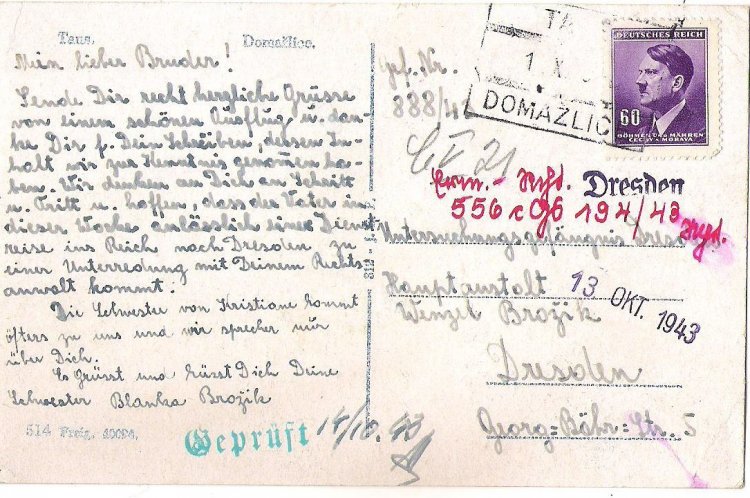 Taus. Domažlice.
Mein lieber Bruder!
Sende Dir recht herzliche Grüsse
von einem schönen Ausflug u. dan-
ke Dir f. Dein Schreiben, dessen In-
halt wir zur Kenntnis genommen ha-
ben. Wir denken an Dich an Schritt
u. Tritt u. hoffen, dass der Vater in
dieser Woche anlässlich einer Dienst
reise ins Reich nach Dresden zu
einer Unterredung mit Deinem Rechts-
anwalt kommt.
Die Schwester von Kristiane kommt
öfters zu uns und wir sprechen nur
über Dich.
Es Grüsst und küsst Dich Deine
Schwester Blanka Brožik
514 Freig. 40094.
Geprüft 14/10 43
DOMAŽLIC
DEUTSCHES REICH
60
BÖHMEN U. MÄHREN
ČECHY A MORAVA
Gef. Nr.
888/4
Dresden
556 c Gs 194/43
Untersuchungsgefängnis Dresd
Hauptanstalt
13 OKT. 1943
Wenzel Brožik
Dresden
Georg-Bähr-Str. 5